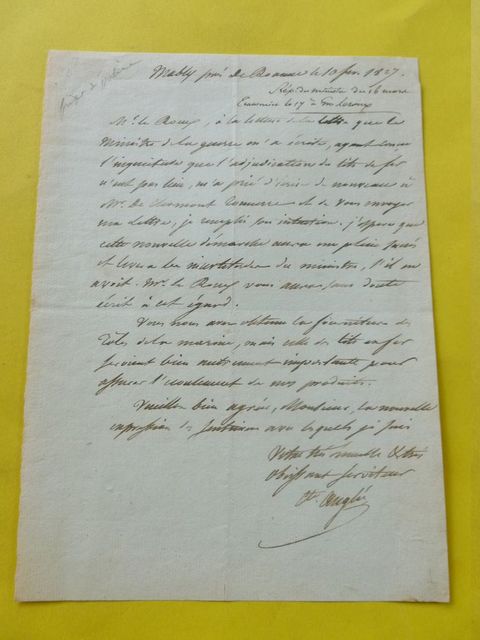 Mably près De Roanne le 10 fev. 1827.
Rép. du ministre du 16 mars
le 17 à Mr Leroux
Mr. le Roux, à la lecture de la lettre que le
Ministre de la guerre m'a écrite, ayant conçu
l'inquiétude que l'adjudication des lits de fer
n'eut pas lieu, m'a prié d'écrire de nouveau à
Mr. De Clermont Tonnerre et de vous envoyer
ma lettre, je remplis son intention. j'espère que
cette nouvelle démarche aura un plein succès
et lèvera les incertitudes du ministre, s'il en
avait. Mr. le Roux vous aura sans doute
écrit à cet égard.
Vous nous avez obtenu la fourniture des
Tôles de la marine, mais celle des lits en fer
serait bien autrement importante pour
assurer l'écoulement de nos produits.
Veuillez bien agréer, Monsieur, la nouvelle
expression des sentimens avec lesquels je suis
Votre très humble & très
obéissant serviteur